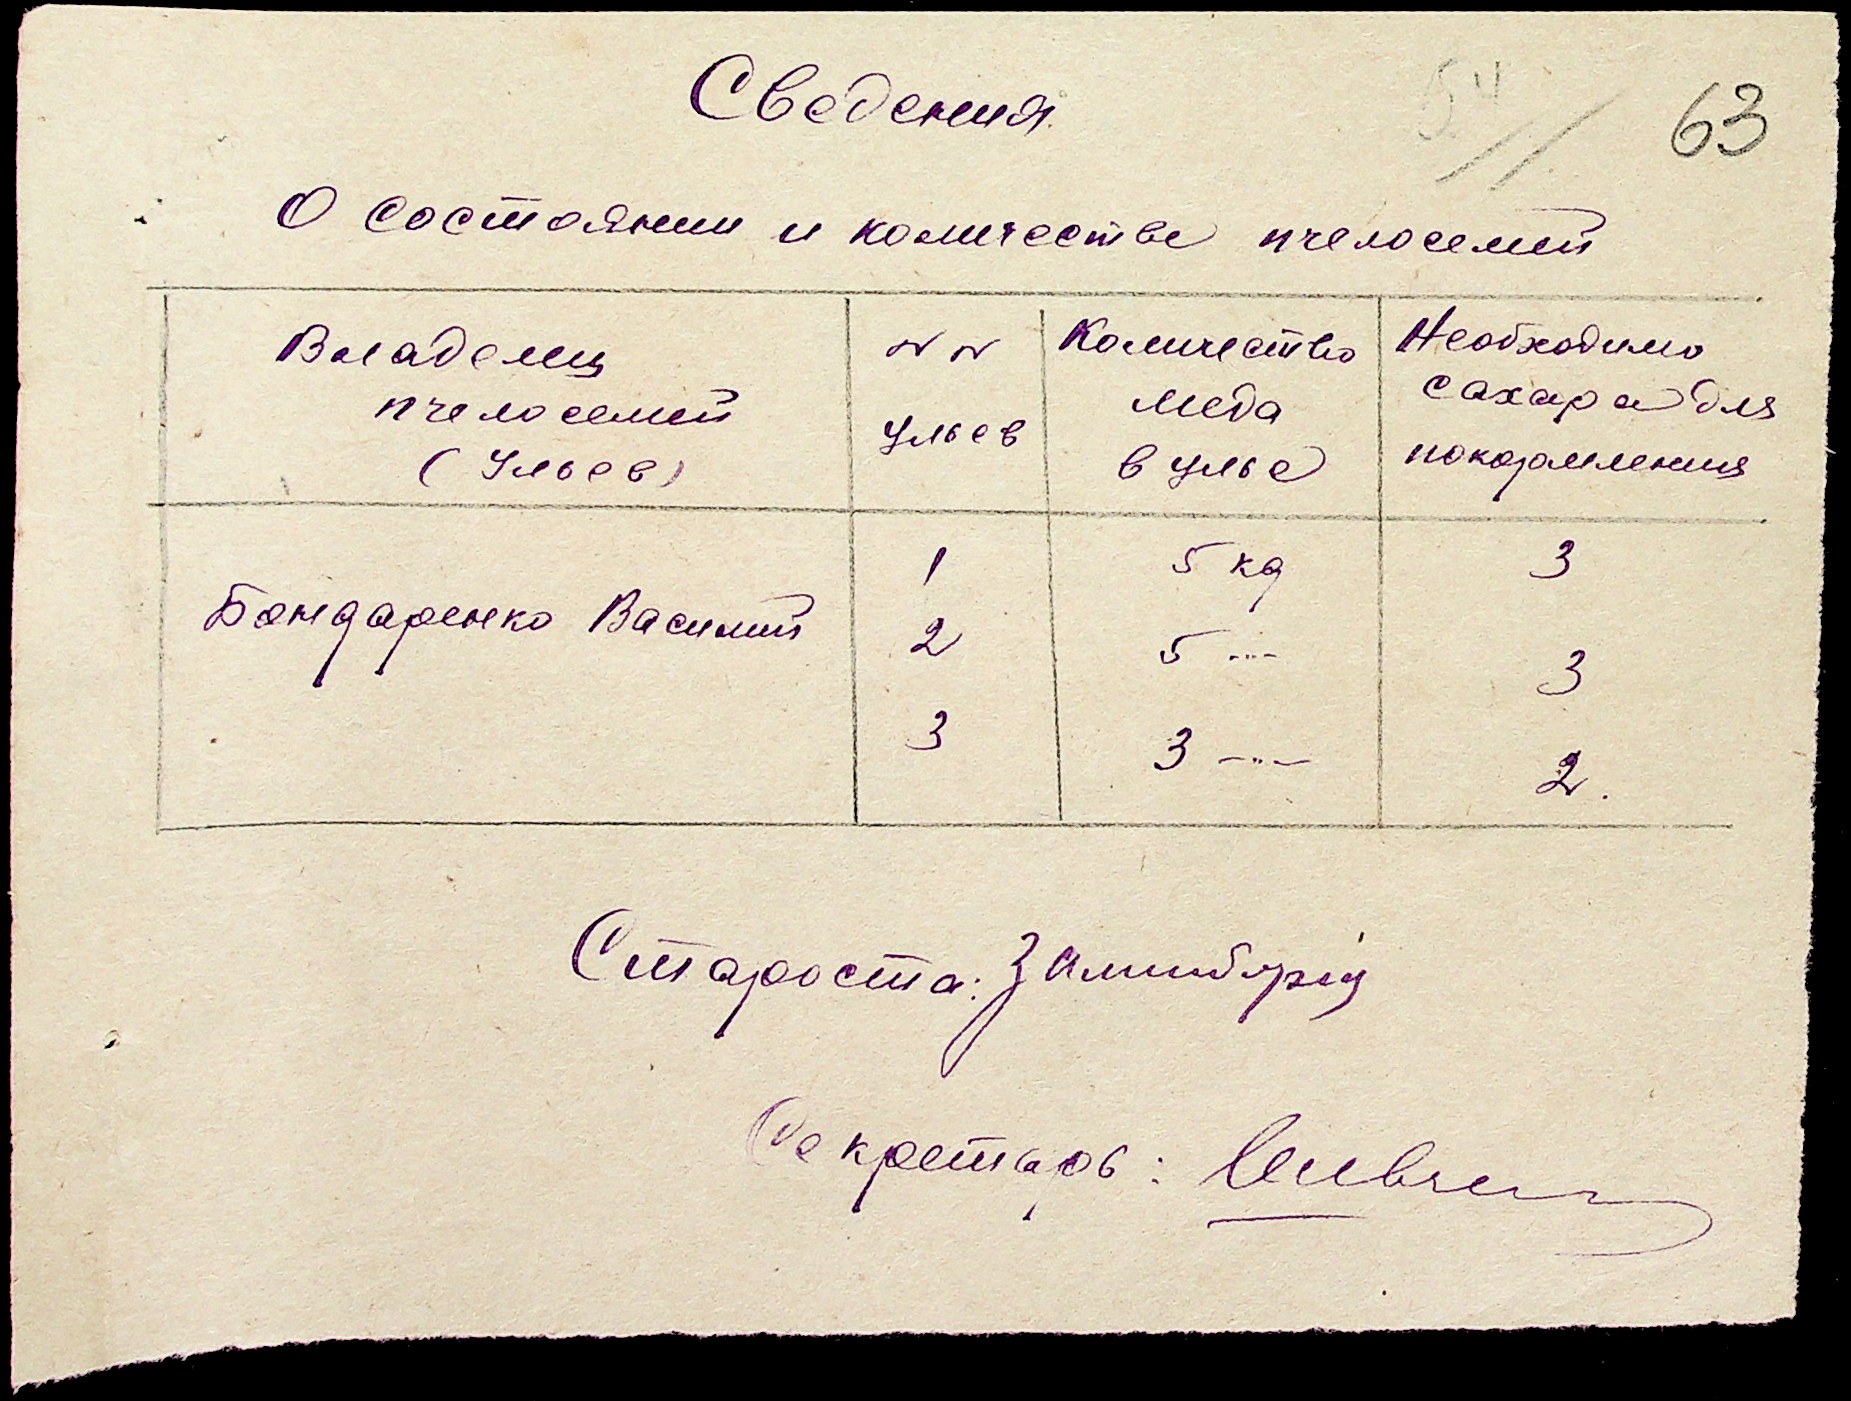 Сведения
54
63
О состоянии и количестве пчелосемей
Владелец
пчелосемей
(Ульев)
NN
ульев
Количество
меда
в улье
Необходимо
сахара для
покормления
Бондаренко Василий
1
5 кg
3
2
5 -··-
3
3
3 -··-
2.
Староста:
Секретарь: